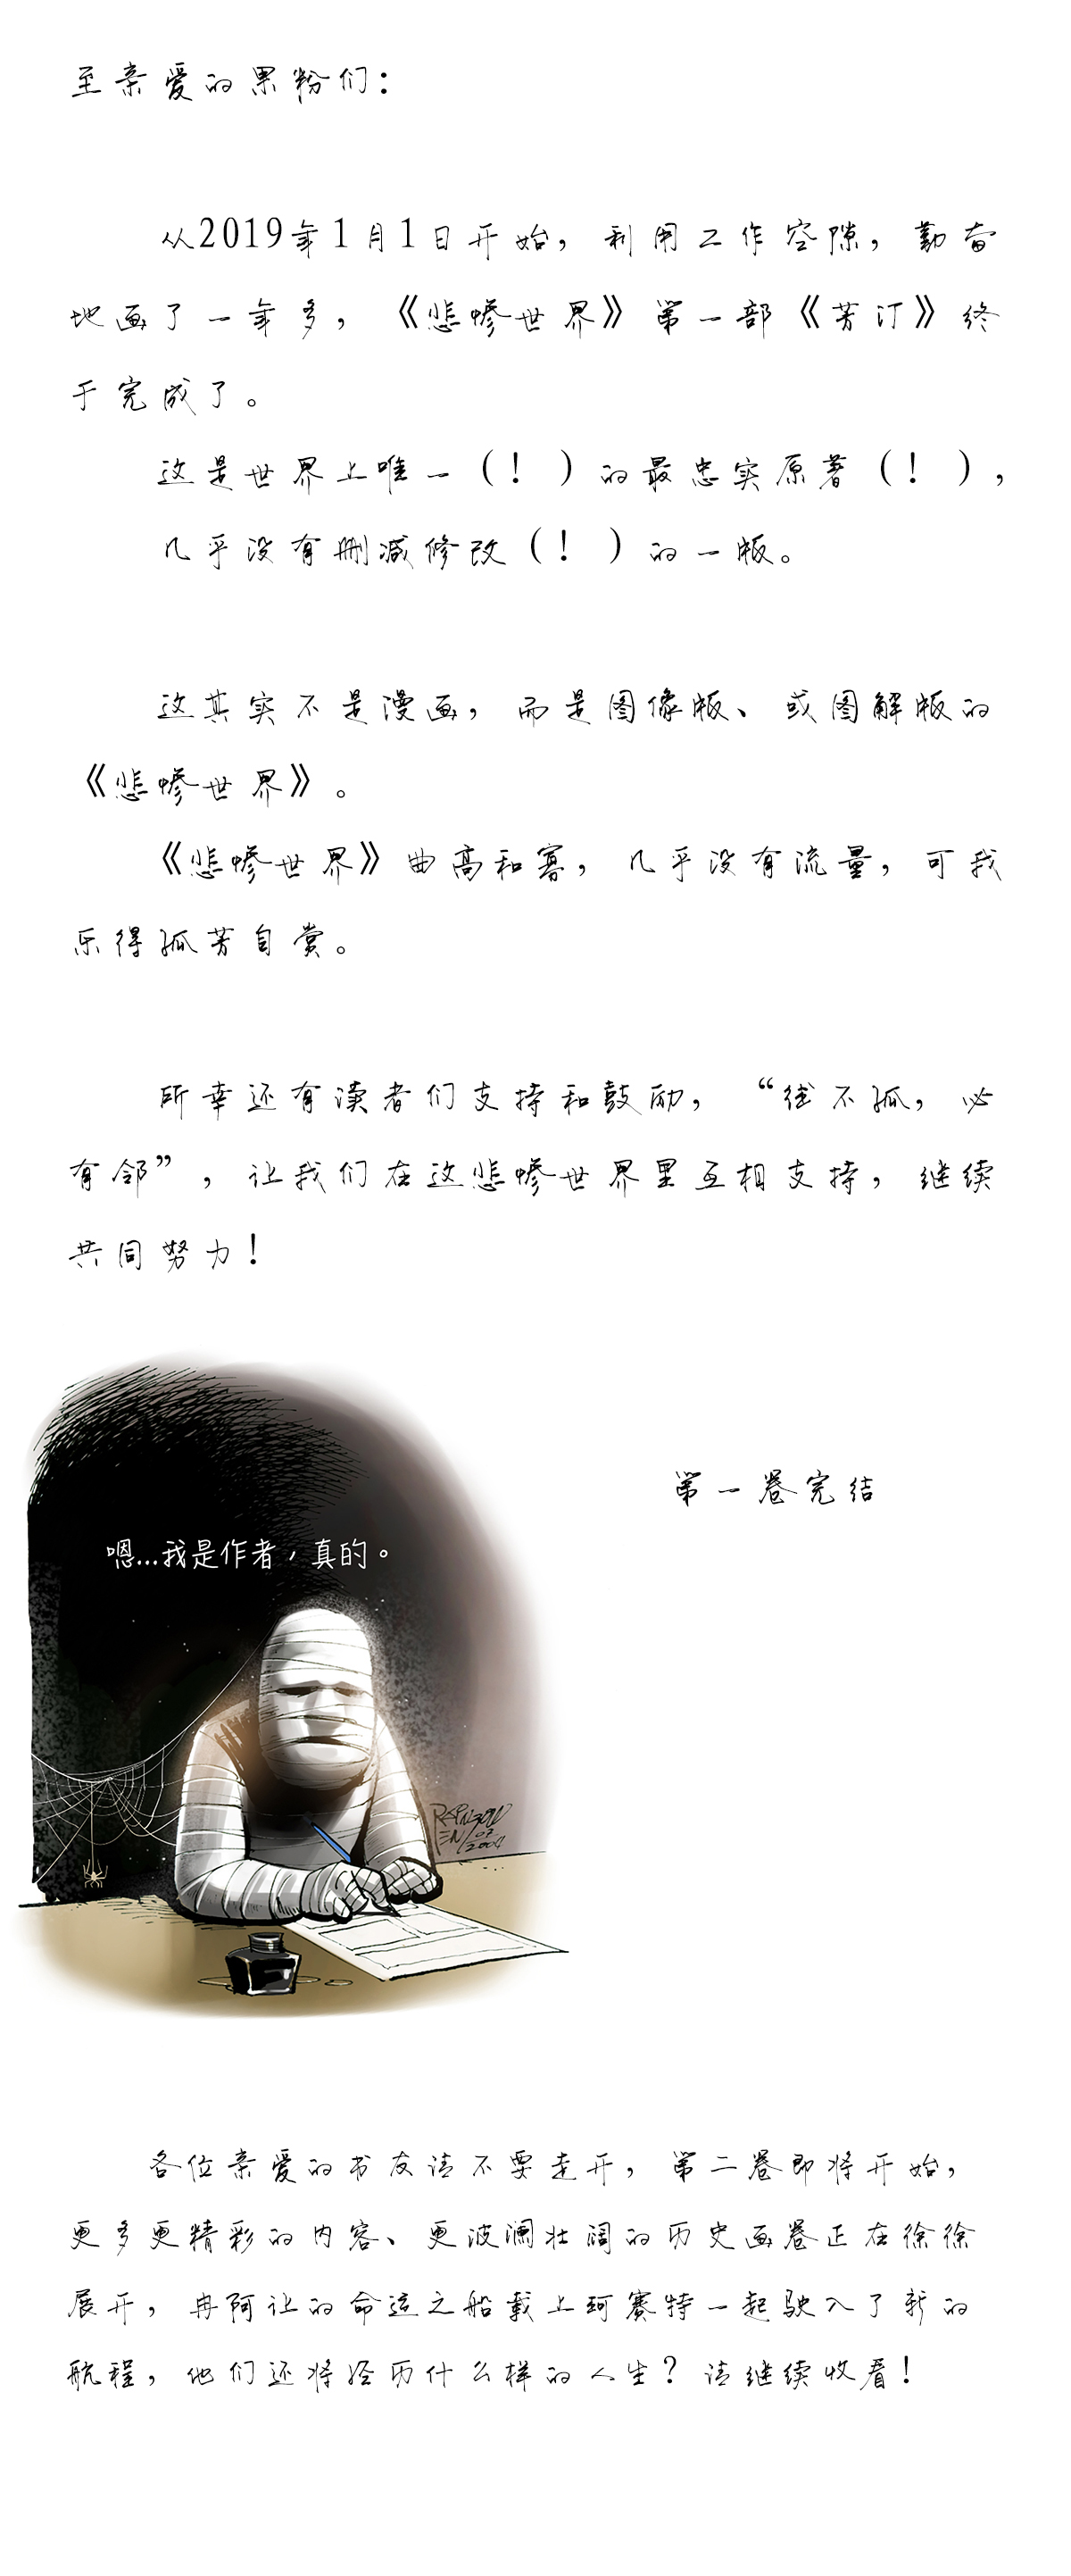 至亲爱的果粉们：
从2019年1月1日开始，利用工作空隙，勤奋
地画了一年多，《悲惨世界》第一部《芳汀》终
于完成了。
这是世界上唯一（！）的最忠实原著（！），
几乎没有删减修改（！）的一版。
这其实不是漫画，而是图像版、或图解版的
《悲惨世界》。
《悲惨世界》曲高和寡，几乎没有流量，可我
乐得孤芳自赏。
所幸还有读者们支持和鼓励，“德不孤，必
有邻”，让我们在这悲惨世界里互相支持，继续
共同努力！
第一卷完结
嗯...我是作者，真的。
各位亲爱的书友请不要走开，第二卷即将开始，
更多更精彩的内容、更波澜壮阔的历史画卷正在徐徐
展开，冉阿让的命运之船载上珂赛特一起驶入了新的
航程，他们还将经历什么样的人生？请继续收看！